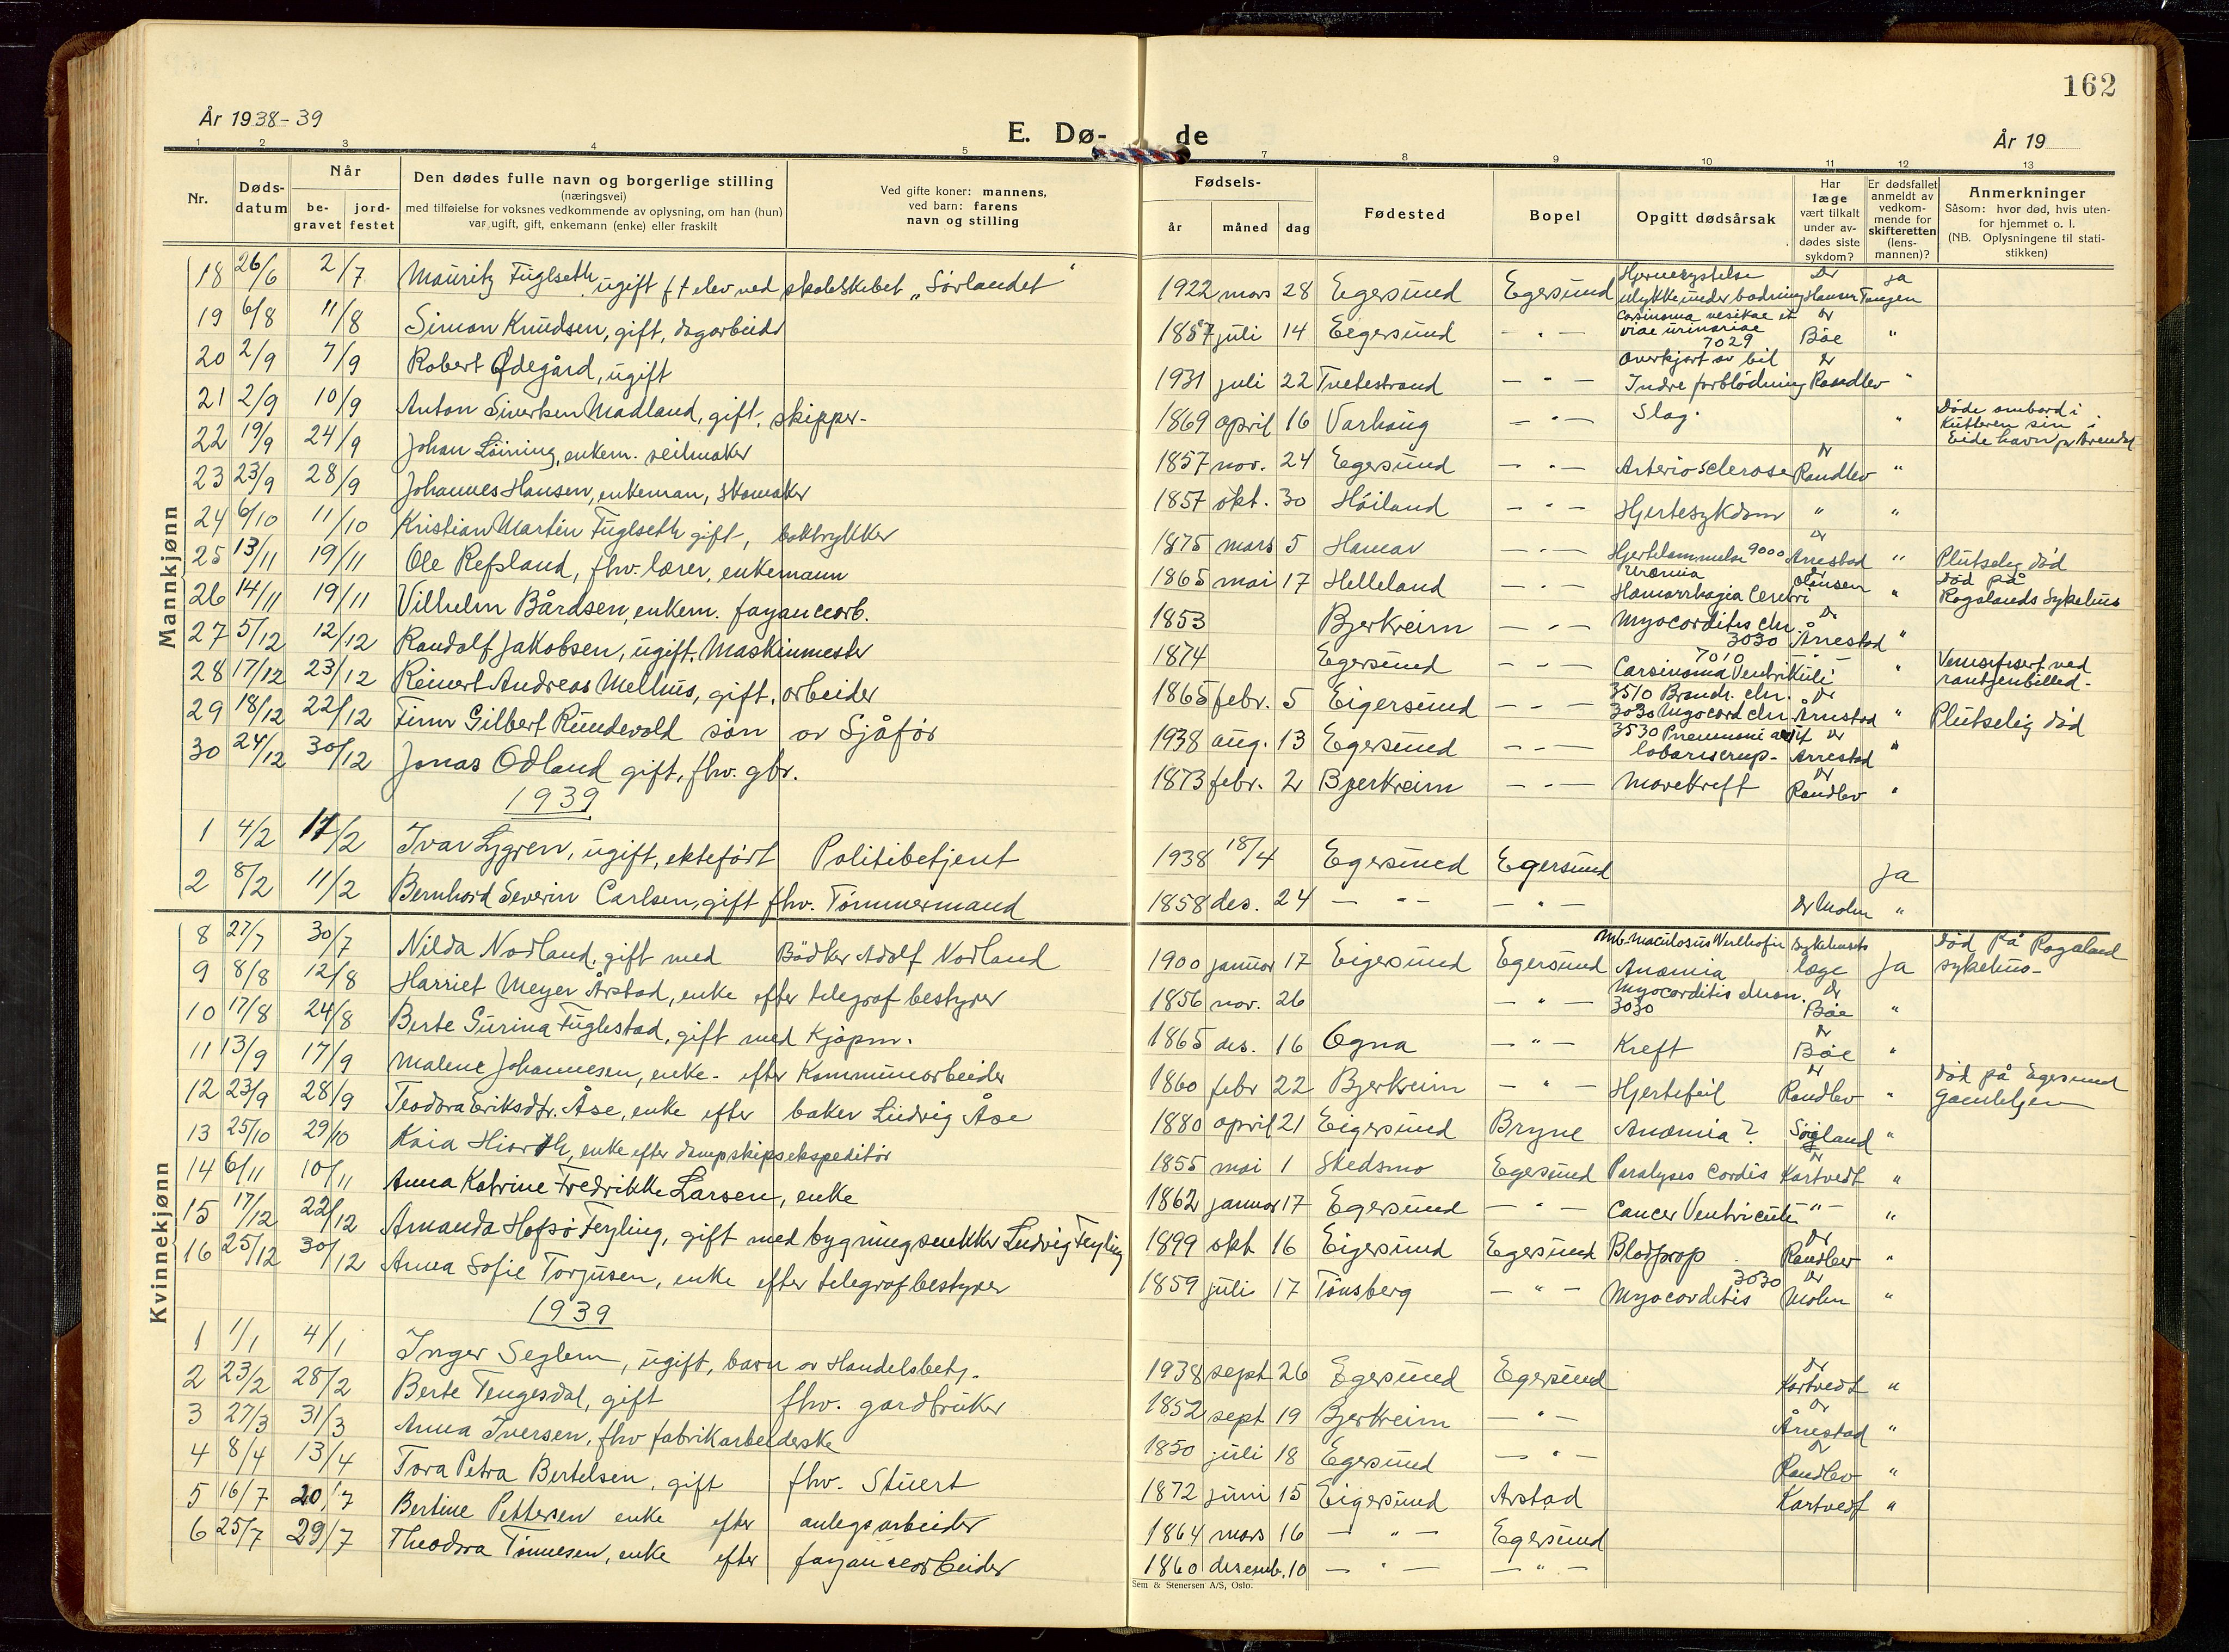 162
År 1938-39
E. Dø- de
År 19
1 2 3 4 5 7 8 9 10 11 12 13
Nr.
Døds-
datum
Når
be-
gravet
jord-
festet
Den dødes fulle navn og borgerlige stilling
(næringsvei)
med tilføielse for voksnes vedkommende av oplysning, om han (hun)
var ugift, gift, enkemann (enke) eller fraskilt
Ved gifte koner: mannens,
ved barn: farens
navn og stilling
Fødsels-
år måned dag
Fødested
Bopel
Opgitt dødsårsak
Har
læge
vært tilkalt
under av-
dødes siste
sykdom?
Er dødsfallet
anmeldt av
vedkom-
mende for
skifteretten
(lens-
mannen)?
Anmerkninger
Såsom: hvor død, hvis uten-
for hjemmet o. l.
(NB. Oplysningene til stati-
stikken)
Mannkjønn
18 26/6 2/7 Mauritz Fuglseth, ugift elev ved skoleskibet „Sörlandet" 1922 mars 28 Egersund Egersund ulykke under badning Dr Hansen Tangen ja
19 6/8 11/8 Simon Knudsen, gift, dagarbeider 1857 juli 14 Eegersund - " - Carsinoma vesikae et viae urinariae Dr Böe "
20 2/9 7/9 Robert Ødegård, ugift 1931 juli 22 Tvetestrand - " - 7029 Overkjørt av bil Indre forblödning Dr Randlev "
21 2/9 10/9 Anton Siversen Madland, gift, skipper- 1869 april 16 Varhaug - " - Slag. " Døde ombord i Kutteren sin i Eidehavn pr Arendal
22 19/9 24/9 Johan Löining, enkem. seilmaker 1857 nov. 24 Egersund - " - Arteriosclerose Dr Randlev "
23 23/9 28/9 Johannes Hansen, enkeman, skomaker 1857 okt. 30 Höiland - " - Hjertesykdom " "
24 6/10 11/10 Kristian Martin Fuglseth gift, boktrykker 1875 mars 5 Hamar - " - Hjertelammelse 9000 Dr Årrestad " Plutselig död
25 13/11 19/11 Ole Refsland, fhv. lærer, enkemann 1865 mai 17 Helleland - " - Uræmia Hæmorrhagia Cerebri Dr Olausen " Död på Rogalands Sykehus
26 14/11 19/11 Vilhelm Bårdsen, enkem. fayancearb. 1853 Bjerkreim - " - Myocarditis chr. 3030 Dr Årrestad "
27 5/12 12/12 Randolf Jakobsen, ugift. Maskinmester 1874 Egersund - " - 7010 Carsinoma Ventrikuli - " - " Verusifisert ved røntgenbilled-
28 17/12 23/12 Reinert Andreas Melhus, gift, arbeider 1865 febr. 5 Eigersund - " - 3510 Bronch. chr. 3030 Myocard chr Dr Årrestad " Plutselig död
29 18/12 22/12 Finn Gilbert Rundevold sön av Sjåför 1938 aug. 13 Egersund - " - 3530 Pneumoni Dr Arrestad "
30 24/12 30/12 Jonas Odland gift, fhv. gbr. 1873 febr. 2 Bjerkreim - " - Mavekreft Dr Randlev "
1939
1 4/2 17/2 Ivar Lygren, ugift, ektefört Politibetjent 1938 18/4 Egersund Egersund ja
2 8/2 11/2 Bernhard Severin Carlsen, gift fhv. Tömmermand 1858 des. 24 - " - - " - Dr Molm "
Kvinnekjønn
8 27/7 30/7 Nilda Nodland, gift med Bödker Adolf Nodland 1900 januar 17 Eigersund Egersund Mb. maculosus Werlhofii Anæmia Sykehusets læge ja Död på Rogaland sykehus-
9 8/8 12/8 Harriet Meyer Årstad, enke efter telegrafbestyrer 1856 nov. 26 - " - Myocarditis chron. 3030 Dr Böe "
10 17/8 24/8 Berte Gurina Fuglestad, gift med Kjöpm. 1865 des. 16 Ogna - " - Kreft Dr Böe "
11 13/9 17/9 Malene Johannesen, enke- efter Kommunearbeider 1860 febr 22 Bjerkreim - " - Hjertefeil Dr Randlev " Död på Egersund Gamlehjem
12 23/9 28/9 Teodora Eriksdtr. Åse, enke efter baker Ludvig Åse 1880 april 21 Eigersund Bryne Anæmia? Sögland "
13 25/10 29/10 Kaia Hiorth, enke efter dampskipsekspeditör 1855 mai 1 Skedsmo Egersund Paralyses Cordis Dr Kartvedt "
14 6/11 10/11 Anna Katrine Fredrikke Larsen, enke 1862 januar 17 Egersund - " - Cancer Ventriculi - " - "
15 17/12 22/12 Amanda Hofsö Feyling, gift med bygningsnekker Ludvig Feyling 1899 okt 16 Eigersund Egersund Blodprop Dr Randlev "
16 25/12 30/12 Anna Sofie Torjusen, enke efter telegrafbestyrer 1859 juli 17 Tönsberg - " - Myocarditis 3030 Dr Molm "
1939
1 1/1 4/1 Inger Seglem, ugift, barn av Handelsbetj. 1938 sept 26 Egersund Egersund Dr Kartvedt "
2 23/2 28/2 Berte Tengesdal, gift fhv. gardbruker 1852 sept 19 Bjerkreim - " - Dr Årrestad "
3 27/3 31/3 Anna Iversen, fhv fabrikarbeiderske 1850 juli 18 Egersund - " - Dr Randlev "
4 8/4 13/4 Tora Petra Bertelsen, gift fhv. Stuert 1872 juni 15 Eigersund Arstad Kartvedt "
5 16/7 20/7 Bertine Pettersen enke efter anlegsarbeider 1864 mars 16 - " - Egersund
6 25/7 29/7 Theodora Tönnesen, enke efter fayancearbeider 1860 desemb. 10 - " - - " -
Sem & Stenersen A/S, Oslo.